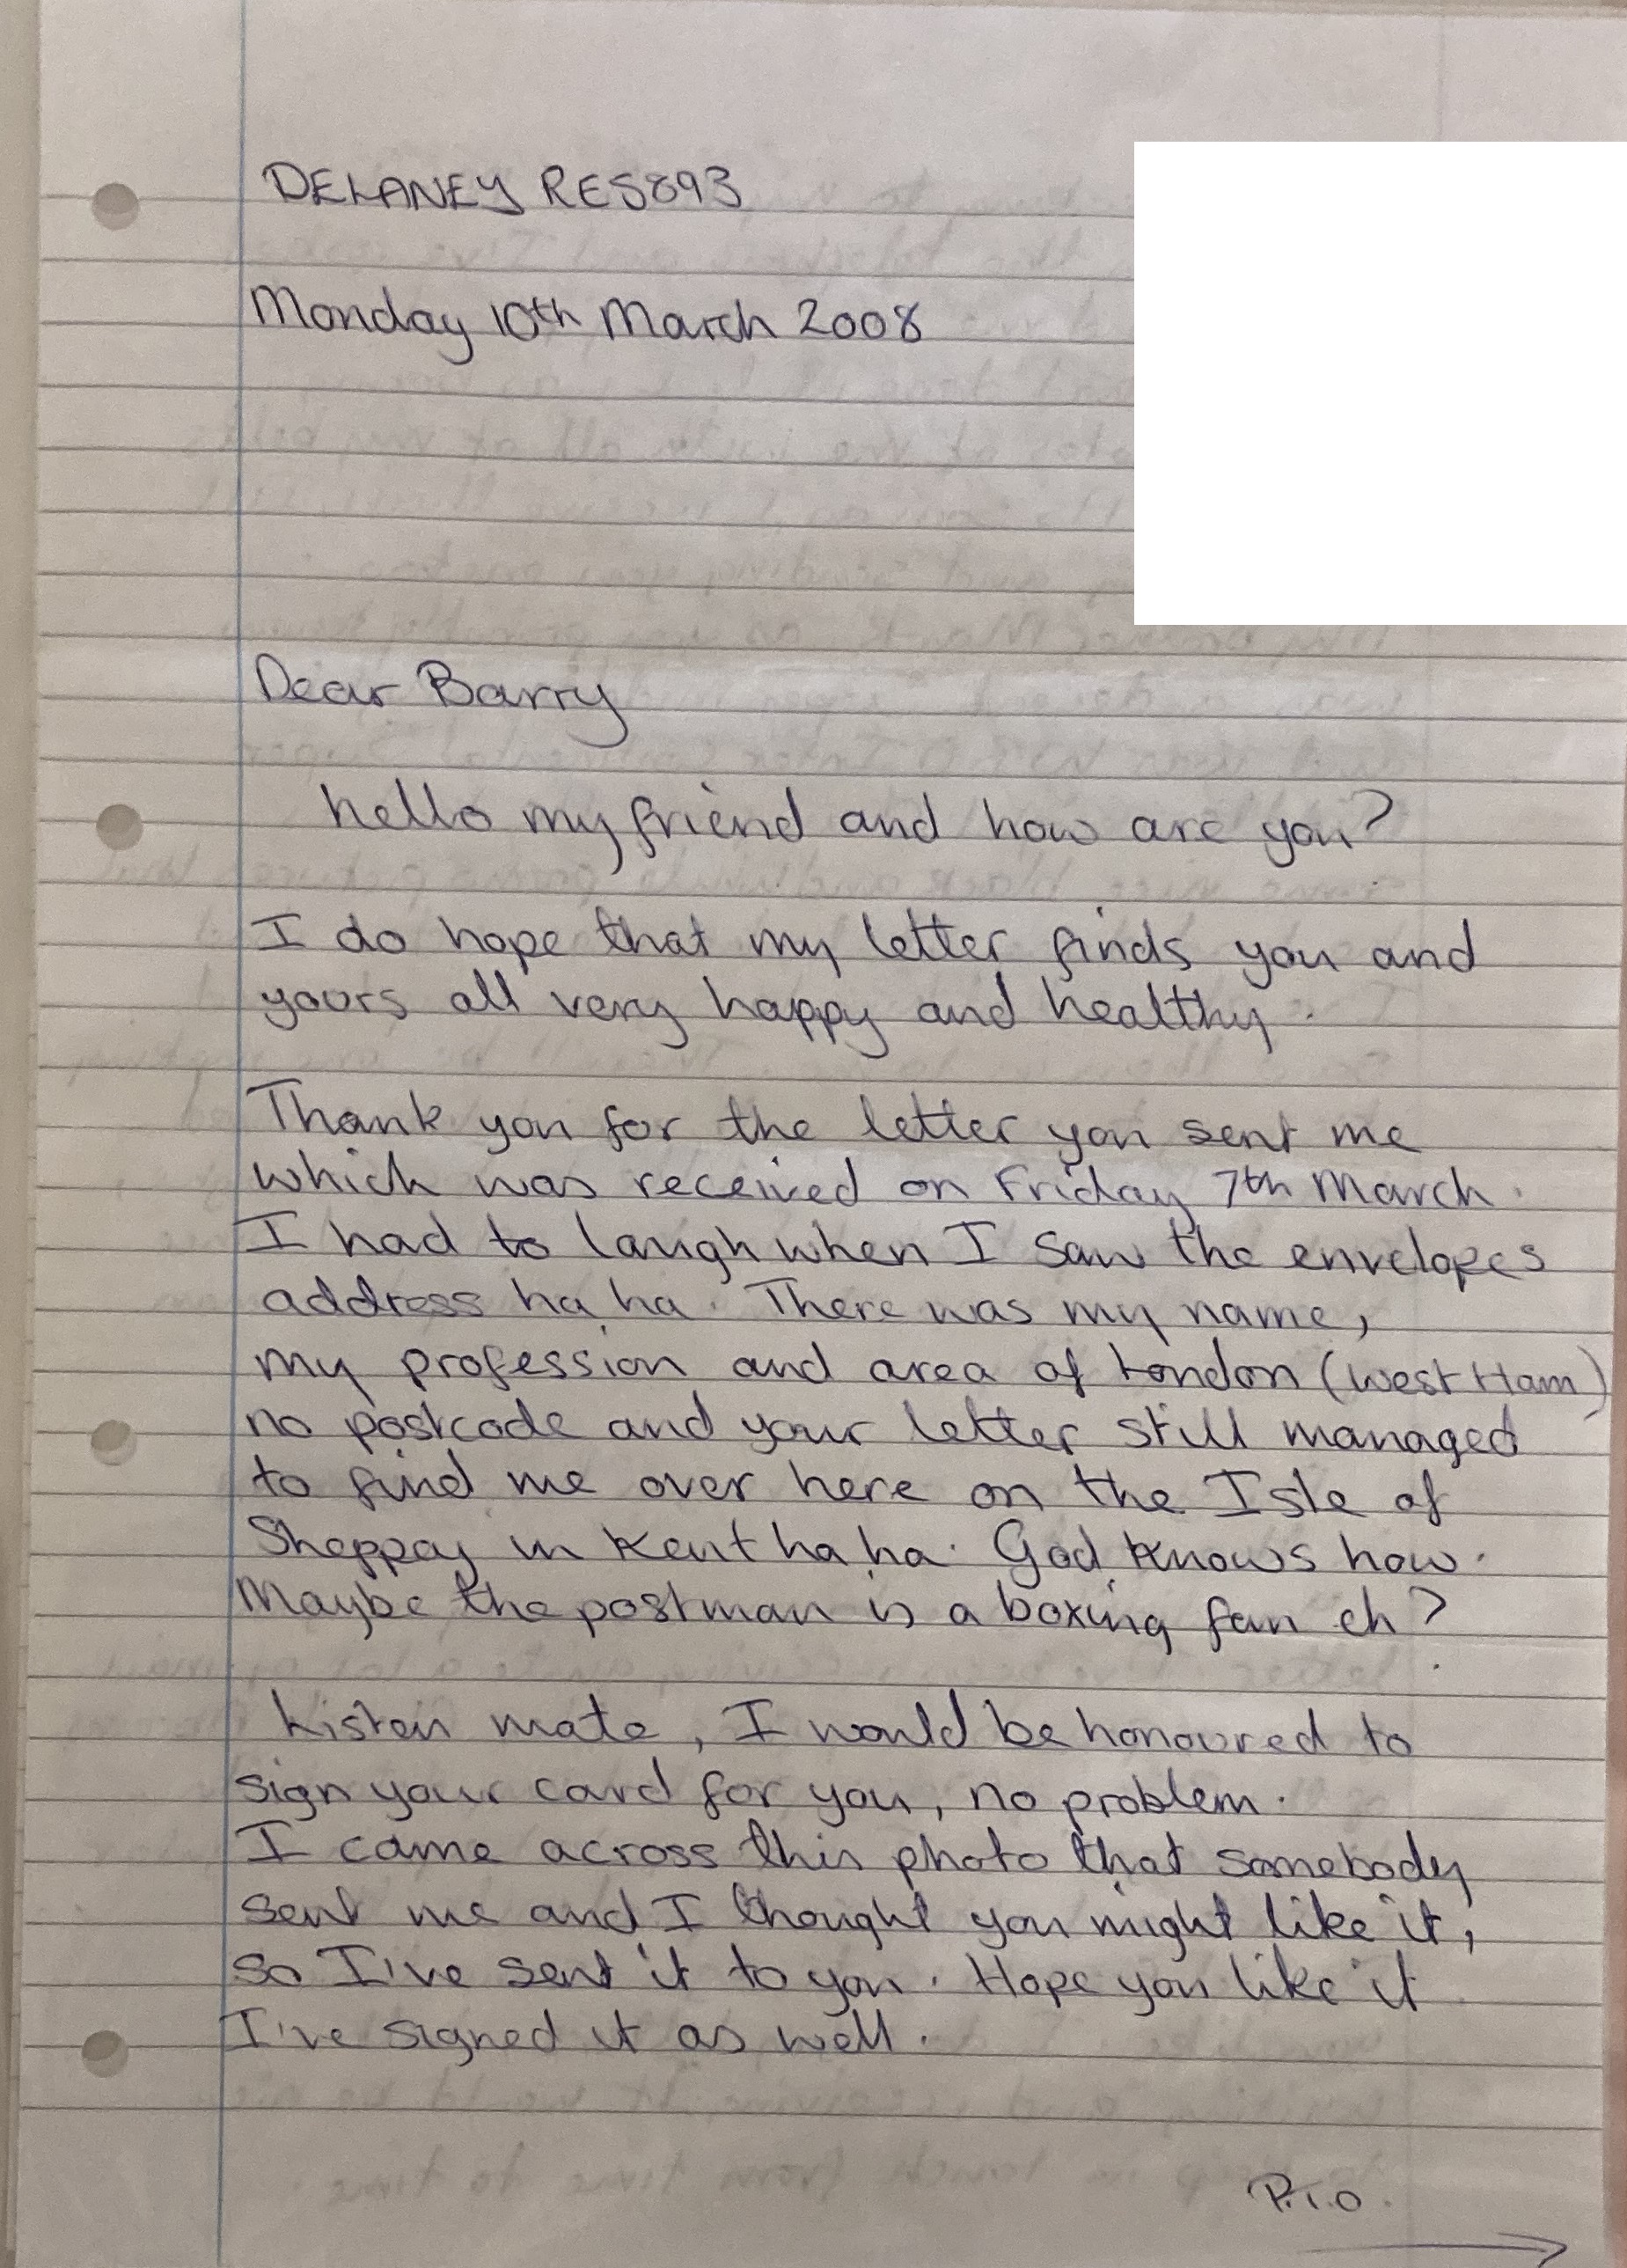 DELANEY RES893
Monday 10th March 2008
Dear Barry
hello my friend and how are you?
I do hope that my letter finds you and
yours all very happy and healthy.
Thank you for the letter you sent me
which was received on Friday 7th March.
I had to laugh when I saw the envelopes
address ha ha. There was my name,
my profession and area of London (West Ham)
no postcode and your letter still managed
to find me over here on the Isle of
Sheppey in Kent ha ha. God knows how.
Maybe the postman is a boxing fan eh?
Listen mate, I would be honoured to
sign your card for you, no problem.
I came across this photo that somebody
sent me and I thought you might like it,
so I've sent it to you. Hope you like it
I've signed it as well.
P.T.O.